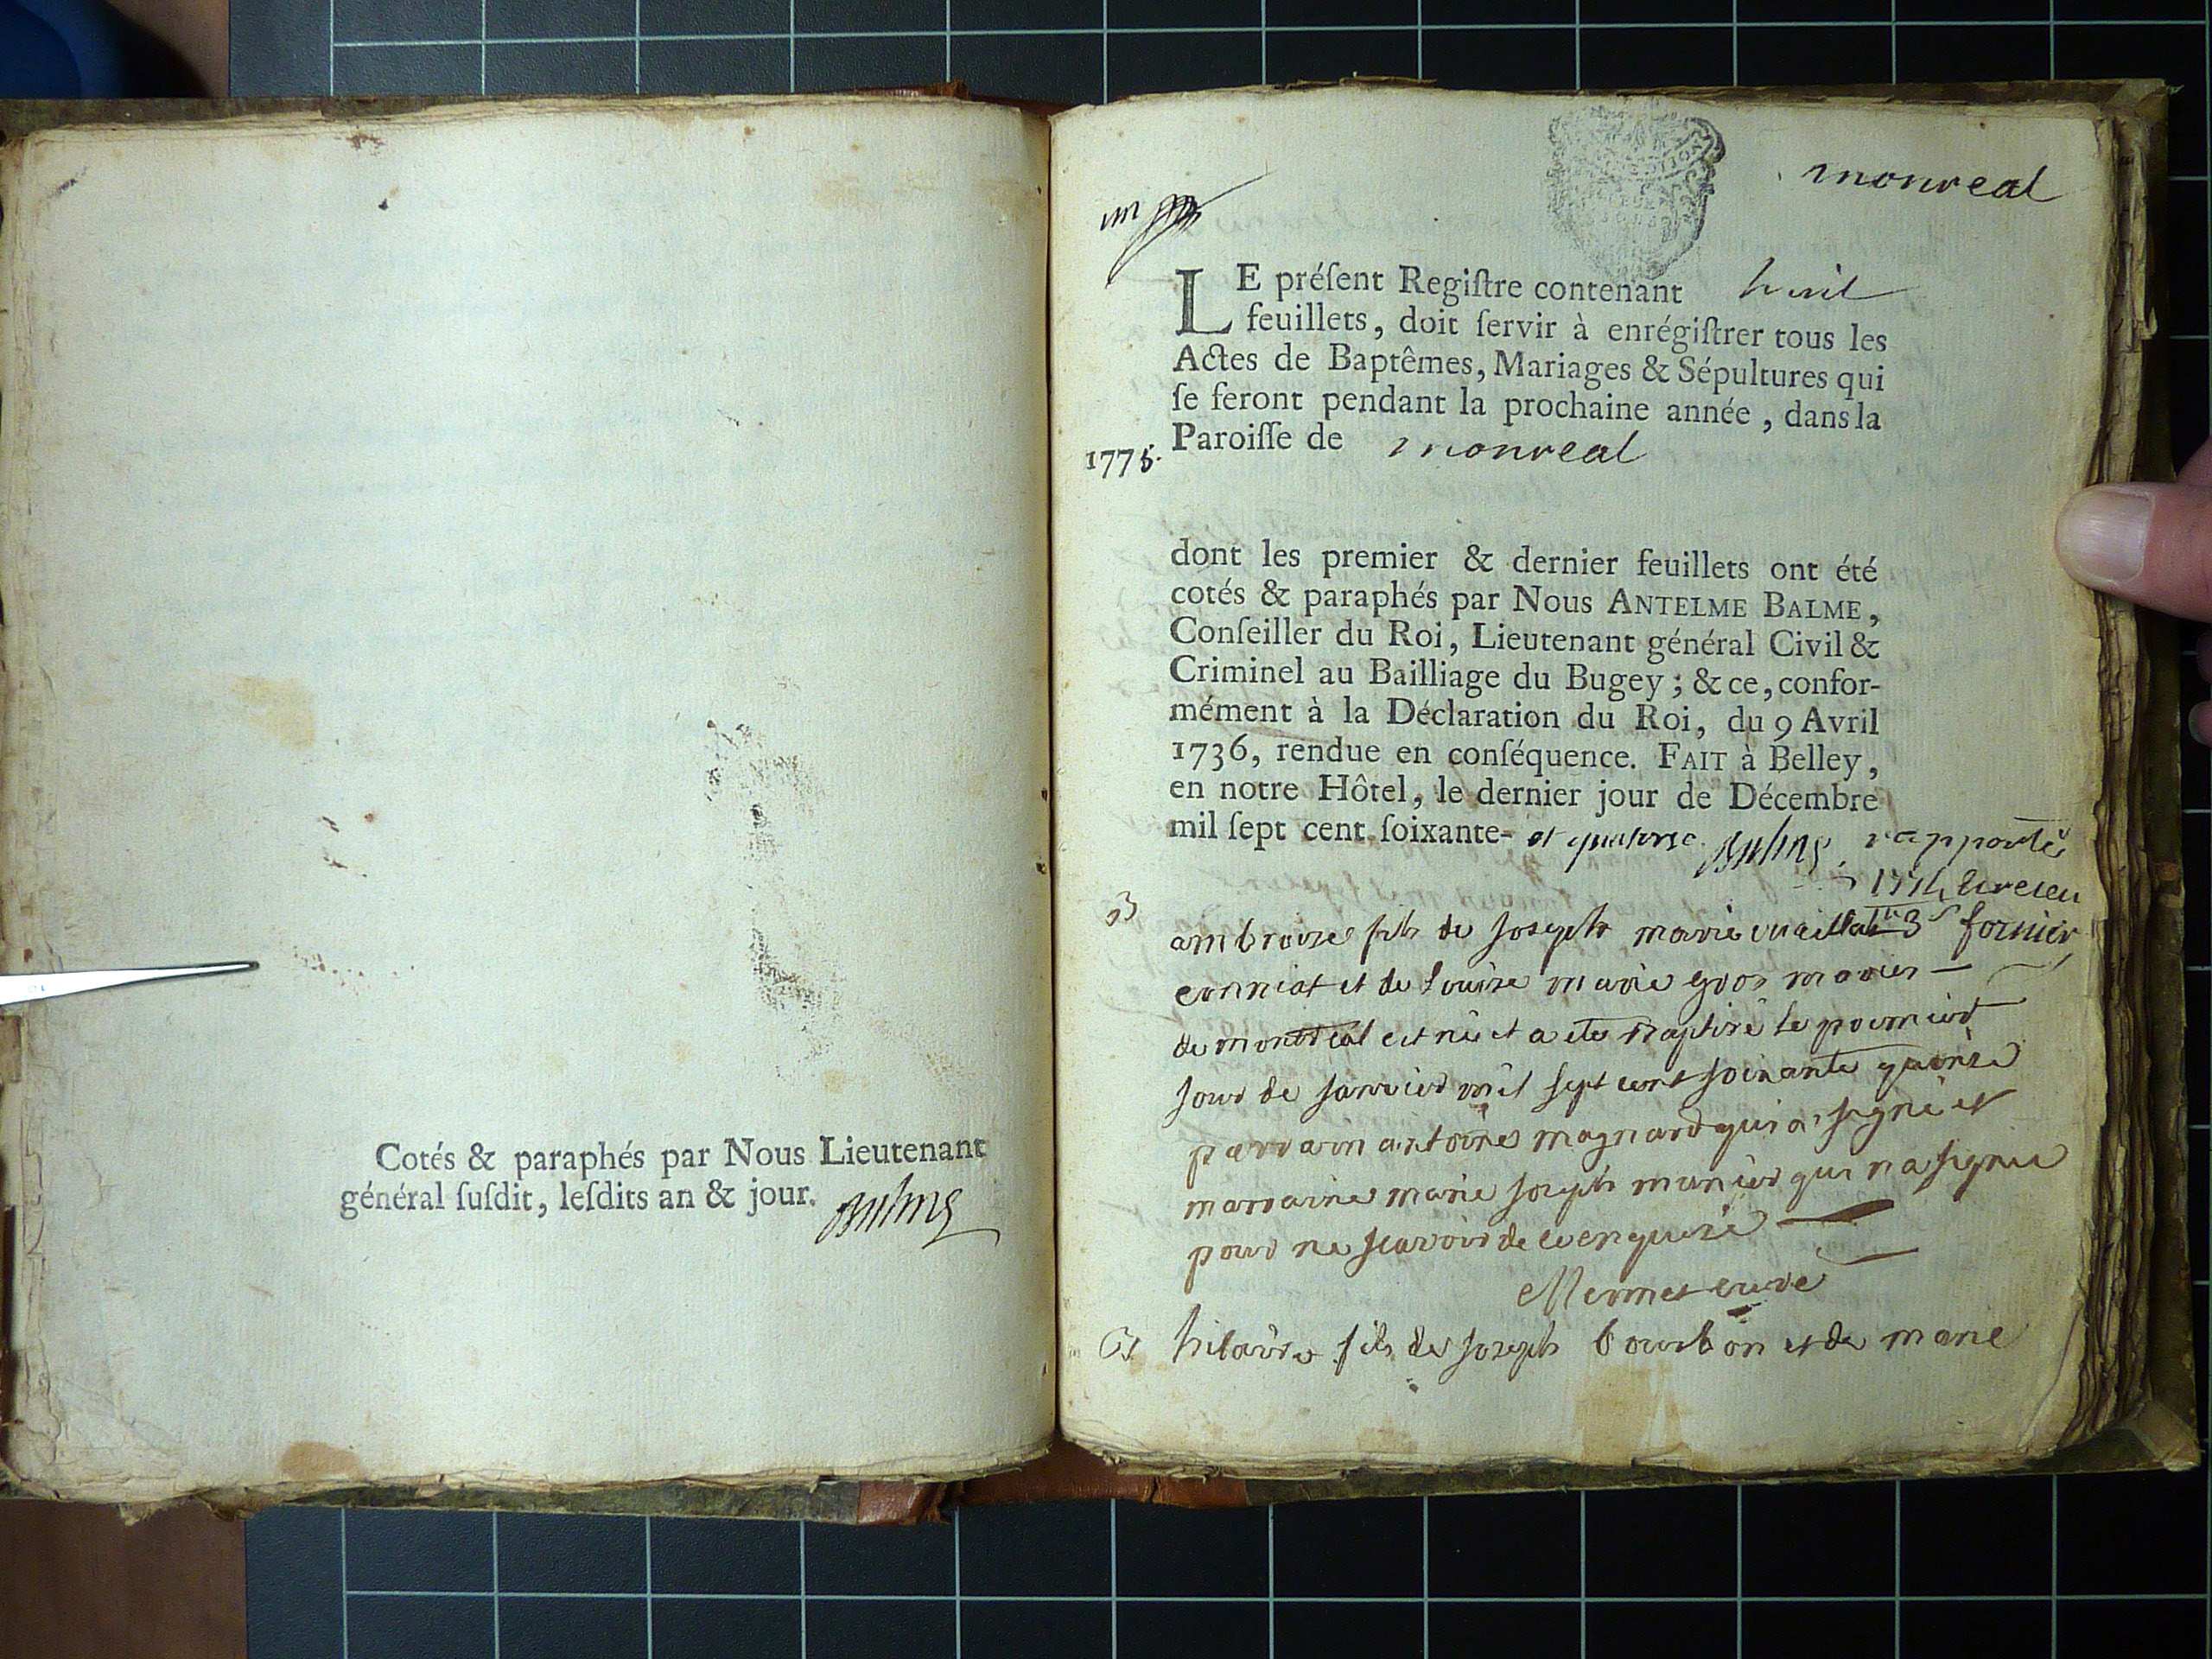 Cotés & paraphés par Nous Lieutenant
général ſuſdit, leſdits an & jour. Balme
monreal
un
LE préſent Regiſtre contenant huit
feuillets, doit ſervir à enrégiſtrer tous les
Actes de Baptêmes, Mariages & Sépultures qui
ſe feront pendant la prochaine année, dans la
1775. Paroiſſe de monreal
dont les premier & dernier feuillets ont été
cotés & paraphés par Nous ANTELME BALME,
Conſeiller du Roi, Lieutenant général Civil &
Criminel au Bailliage du Bugey; & ce, confor-
mément à la Déclaration du Roi, du 9 Avril
1736, rendue en conſéquence. FAIT à Belley,
en notre Hôtel, le dernier jour de Décembre
mil ſept cent ſoixante- et quatorse. Balme
B
ambroise fils de Joseph marie
et de Louise marie gros maries
de montreal est né et a ete Baptisé le premier
Jour de Janvier mil sept cent soixante quinse
parrain antoine magnard qui a signé et
marraine marie Joseph munier qui n a signé
pour ne scavoir de ce enquise
Mermet curé
B hilaire fils de Joseph bourbon et de marie